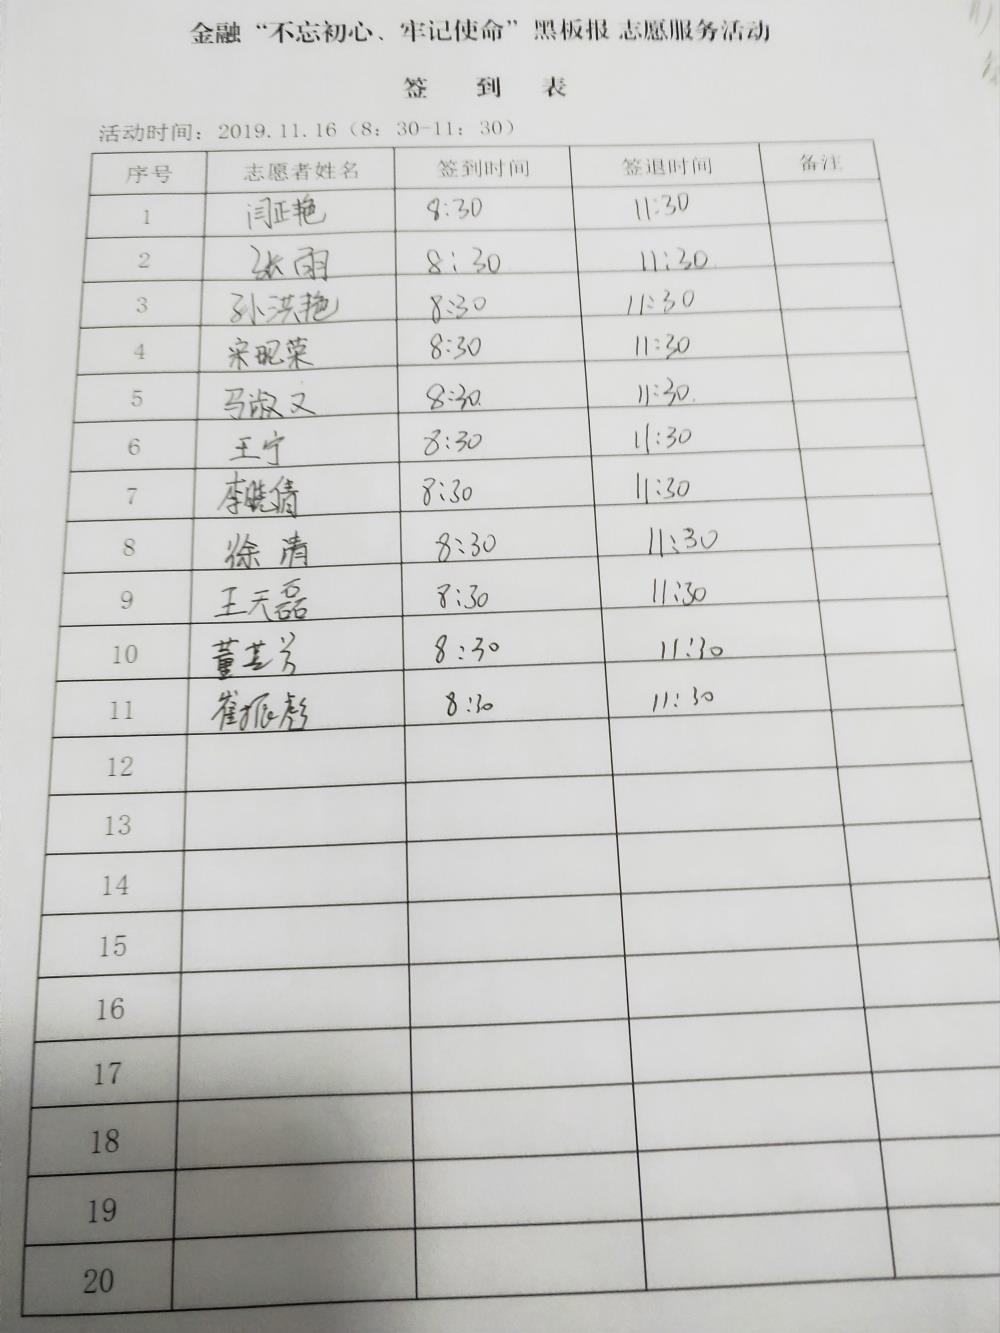 金融“不忘初心、牢记使命”黑板报 志愿服务活动
签 到 表
活动时间：2019.11.16（8：30-11：30）
序号 志愿者姓名 签到时间 签退时间 备注
1 闫正艳 8:30 11:30
2 张雨 8:30 11:30
3 孙洪艳 8:30 11:30
4 宋昵荣 8:30 11:30
5 马淑文 8:30 11:30
6 王宁 8:30 11:30
7 李晓倩 8:30 11:30
8 徐清 8:30 11:30
9 王天磊 8:30 11:30
10 董芸芳 8:30 11:30
11 崔振彪 8:30 11:30
12
13
14
15
16
17
18
19
20